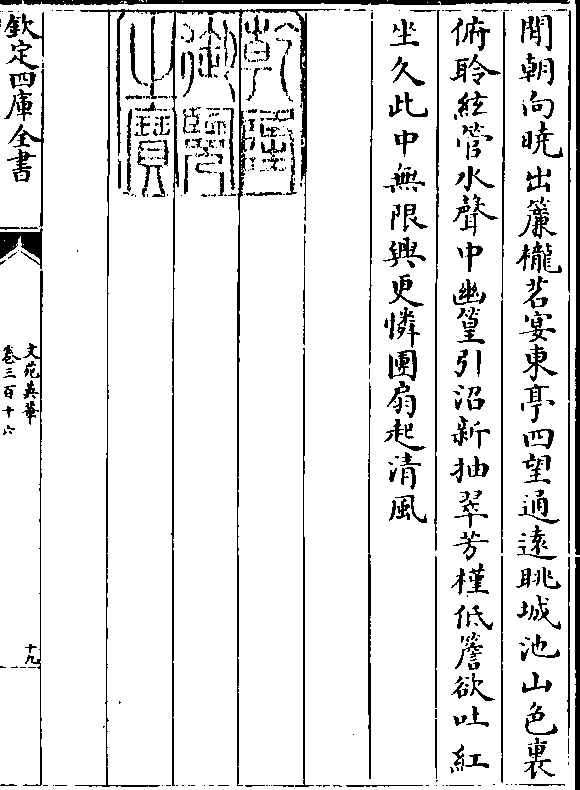 閒朝向曉出簾櫳茗宴東亭四望通遠眺城池山色裏
俯聆絃管水聲中幽篁引沼新抽翠芳槿低簷欲吐紅
坐久此中無限興更憐團扇起清風
乾隆御覽之寶
欽定四庫全書
文苑英華
卷三百十六
十九